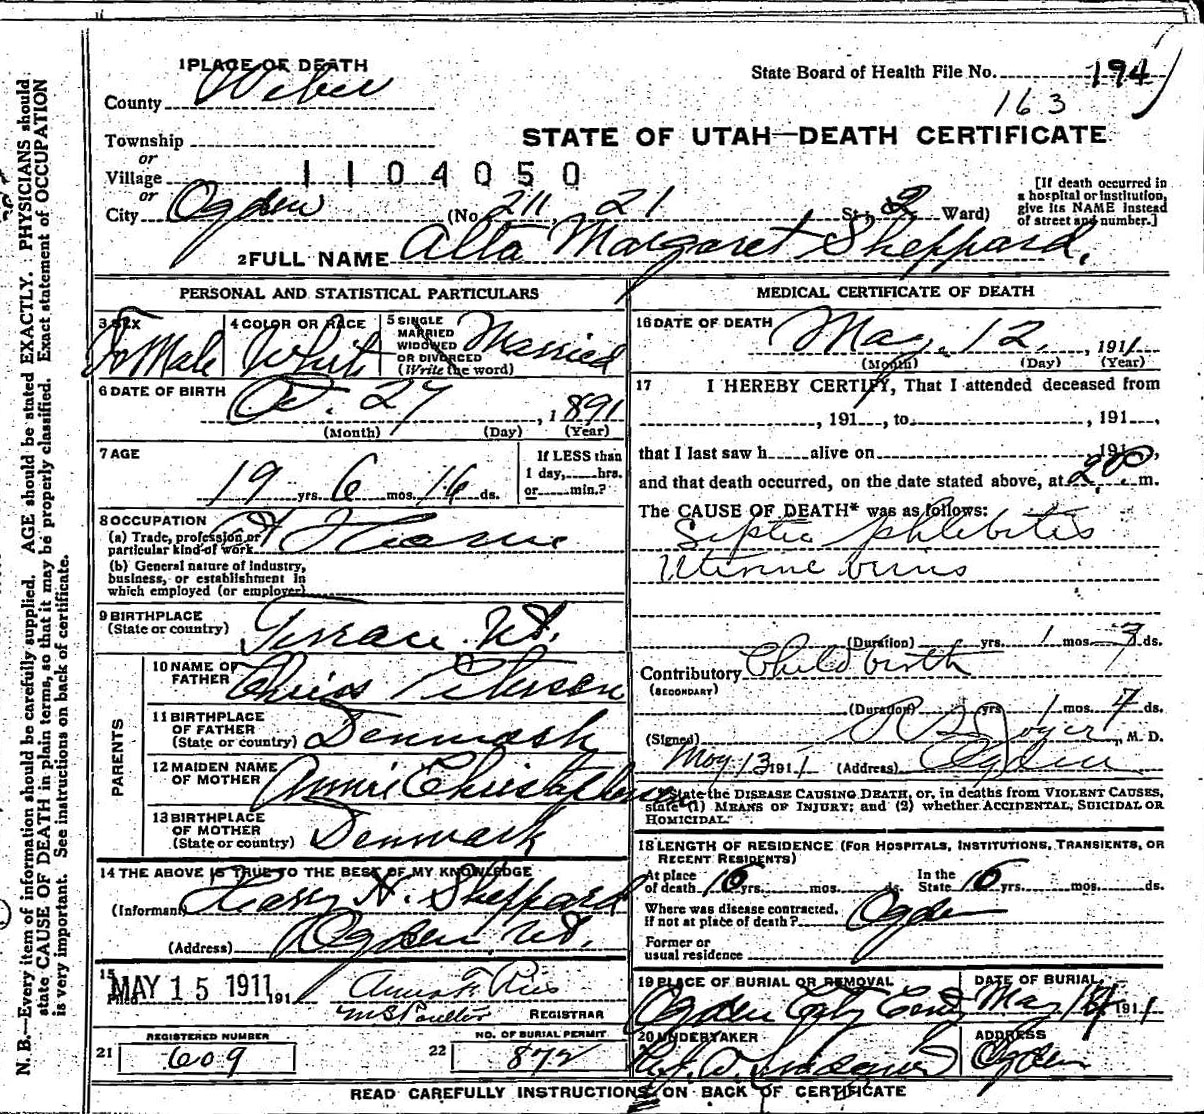 1 PLACE OF DEATH
County Weber
State Board of Health File No. 194
163
Township
or
Village
or
1104050
STATE OF UTAH—DEATH CERTIFICATE
City Ogden (No. 211, 21 St.; 3 Ward)
[If death occurred in a hospital or institution, give its NAME instead of street and number.]
2 FULL NAME Alta Margaret Sheppard.
PERSONAL AND STATISTICAL PARTICULARS
3 SEX FeMale
4 COLOR OR RACE White
5 SINGLE MARRIED WIDOWED OR DIVORCED (Write the word) Married
6 DATE OF BIRTH Oct. 27, 1891
(Month) (Day) (Year)
7 AGE 19 yrs. 6 mos. 16 ds.
If LESS than 1 day,____hrs. or____min.?
8 OCCUPATION
(a) Trade, profession or particular kind of work At Home
(b) General nature of industry, business, or establishment in which employed (or employer)
9 BIRTHPLACE (State or country) Terrace. Ut.
PARENTS
10 NAME OF FATHER Chriss Peterson
11 BIRTHPLACE OF FATHER (State or country) Denmark
12 MAIDEN NAME OF MOTHER Annie Christofferson
13 BIRTHPLACE OF MOTHER (State or country) Denmark
14 THE ABOVE IS TRUE TO THE BEST OF MY KNOWLEDGE
(Informant) Harry H. Sheppard
(Address) Ogden Ut.
15 Filed MAY 15 1911 191
Anna F. Rice
REGISTRAR
REGISTERED NUMBER
21 609
NO. OF BURIAL PERMIT
22 872
MEDICAL CERTIFICATE OF DEATH
16 DATE OF DEATH May. 12, 1911
(Month) (Day) (Year)
17 I HEREBY CERTIFY, That I attended deceased from
, 191__, to , 191__,
that I last saw h____ alive on 191__,
and that death occurred, on the date stated above, at 200 m.
The CAUSE OF DEATH* was as follows:
Septic phlebitis
Uterine veins
(Duration) yrs. 1 mos. 7 ds.
Contributory Childbirth
(SECONDARY)
(Duration) yrs. 1 mos. 7 ds.
(Signed) M. D.
May 13 1911 (Address) Ogden
*State the DISEASE CAUSING DEATH, or, in deaths from VIOLENT CAUSES, state (1) MEANS OF INJURY; and (2) whether ACCIDENTAL, SUICIDAL OR HOMICIDAL.
18 LENGTH OF RESIDENCE (FOR HOSPITALS, INSTITUTIONS, TRANSIENTS, OR RECENT RESIDENTS)
At place of death 16 yrs. mos. ds. In the State 16 yrs. mos. ds.
Where was disease contracted, If not at place of death? Ogden
Former or usual residence
19 PLACE OF BURIAL OR REMOVAL Ogden City Cemty
DATE OF BURIAL May 1911
20 UNDERTAKER
ADDRESS Ogden
READ CAREFULLY INSTRUCTIONS ON BACK OF CERTIFICATE
N. B.—Every item of information should be carefully supplied. AGE should be stated EXACTLY. PHYSICIANS should
state CAUSE OF DEATH in plain terms, so that it may be properly classified. Exact statement of OCCUPATION
is very important. See instructions on back of certificate.